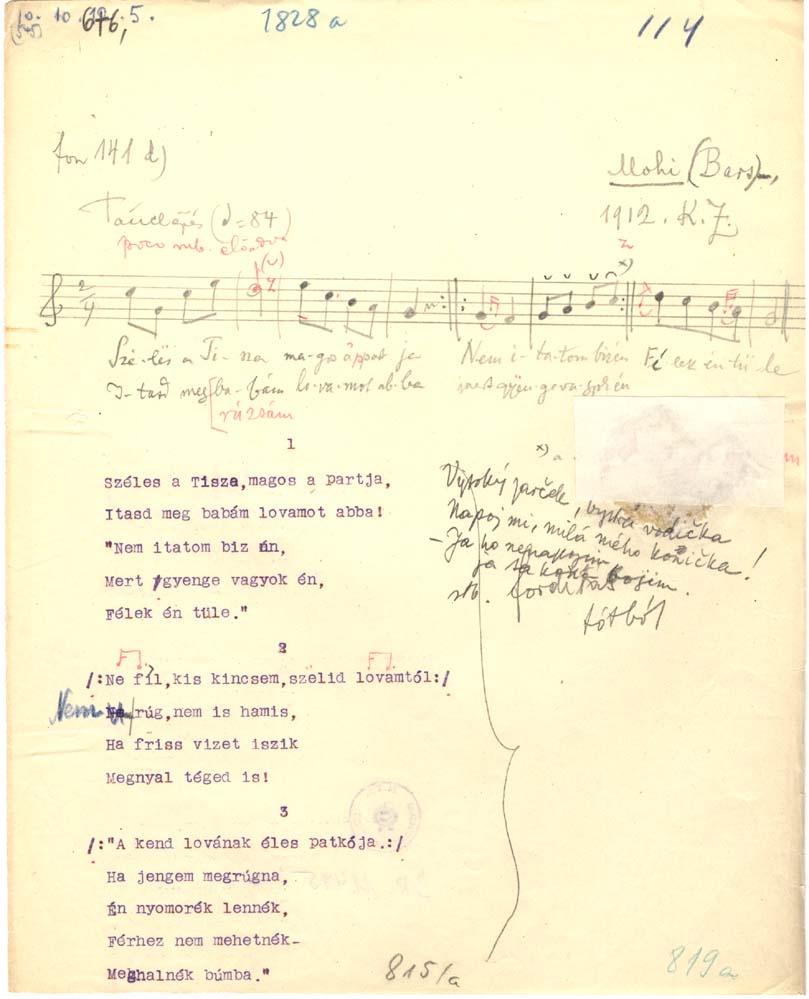 10. 10. 12. 5.
676,
1828 a
114
fon 141 d)
Mohi (Bars)m,
1912. K.Z.
Tánclépés (d=84)
poco rub. előadva
2/4
Szé-les a Ti-sza ma-gos a part ja Nem i-ta-tom bizén Fé-lek én tü-le
I-tasd meg ba-bám lo-va-mot ab-ba
rúzsám
1
Széles a Tisza,magos a partja,
Itasd meg babám lovamot abba!
"Nem itatom biz én,
Mert gyenge vagyok én,
Félek én tüle."
x) a
Vysoký jarček, bystrá vodička
Napoj mi, milá mého konička!
- Ja ho nenapojim
ja sa koňa bojim.
stb. fordítás
tótból
2
/:Ne fíl,kis kincsem,szelid lovamtól:/
Nem rúg,nem is hamis,
Ha friss vizet iszik
Megnyal téged is!
3
/:"A kend lovának éles patkója.:/
Ha jengem megrúgna,
Én nyomorék lennék,
Férhez nem mehetnék-
Meghalnék búmba."
815/a
819a